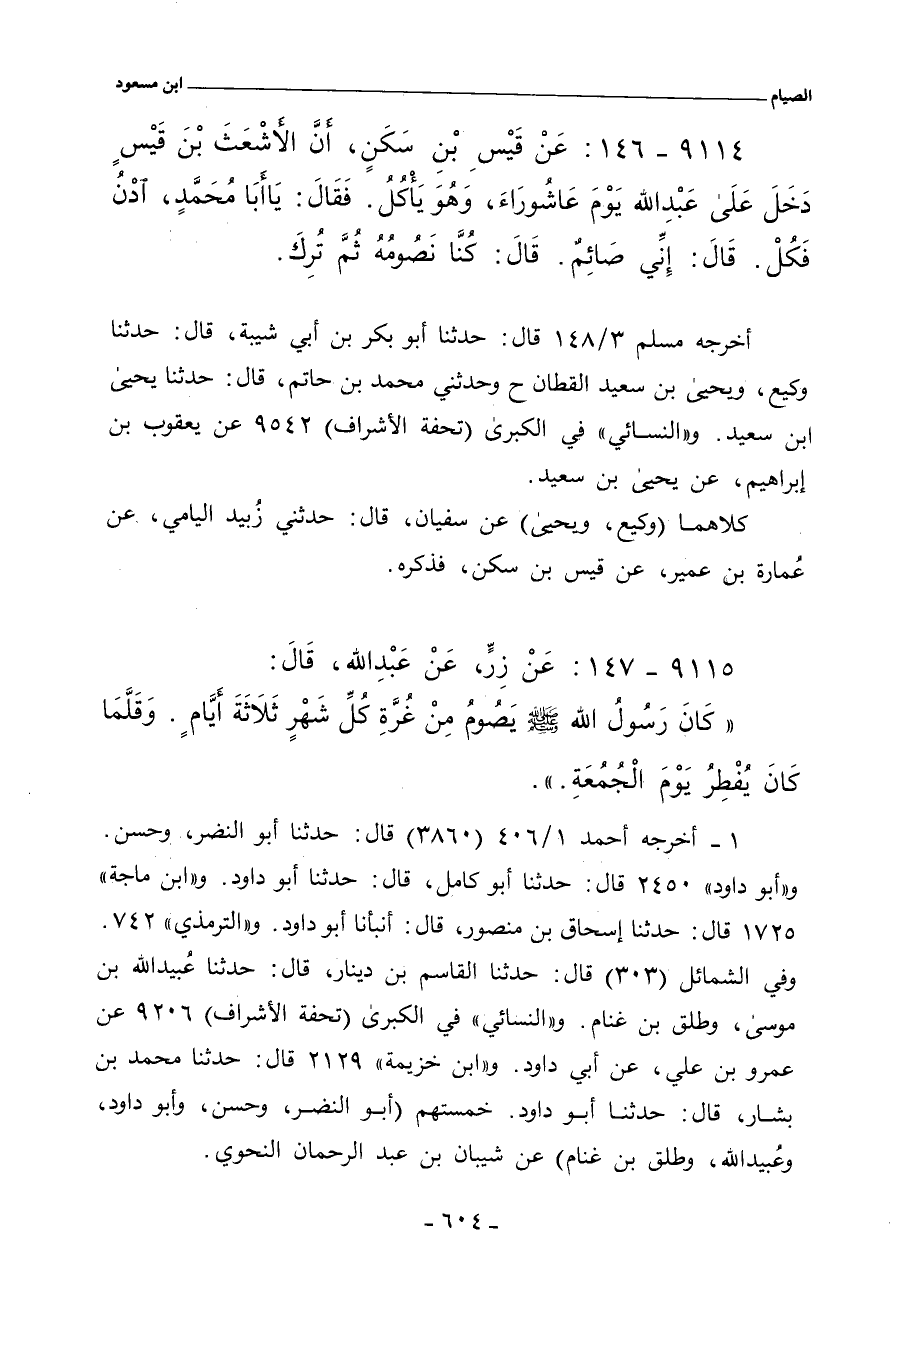 الصيام ــــــــــــــــــــــــــــــــــــــــ ابن مسعود
٩١١٤ ـ ١٤٦ : عَنْ قَيْسِ بْنِ سَكَنٍ، أَنَّ الْأَشْعَثَ بْنَ قَيْسٍ
دَخَلَ عَلَىٰ عَبْدِالله يَوْمَ عَاشُورَاءَ، وَهُوَ يَأْكُلُ. فَقَالَ: يَاأَبَا مُحَمَّدٍ، آدْنُ
فَكُلْ. قَالَ: إِنِّي صَائِمٌ. قَالَ: كُنَّا نَصُومُهُ ثُمَّ تُرِكَ.
أخرجه مسلم ١٤٨/٣ قال: حدثنا أبو بكر بن أبي شيبة، قال: حدثنا
وكيع، ويحيىٰ بن سعيد القطان ح وحدثني محمد بن حاتم، قال: حدثنا يحيىٰ
ابن سعيد. و«النسائي» في الكبرىٰ (تحفة الأشراف) ٩٥٤٢ عن يعقوب بن
إبراهيم، عن يحيىٰ بن سعيد.
كلاهما (وكيع، ويحيىٰ) عن سفيان، قال: حدثني زُبيد اليامي، عن
عُمارة بن عمير، عن قيس بن سكن، فذكره.
٩١١٥ ـ ١٤٧ : عَنْ زِرٍّ، عَنْ عَبْدِالله، قَالَ:
« كَانَ رَسُولُ الله ﷺ يَصُومُ مِنْ غُرَّةِ كُلِّ شَهْرٍ ثَلَاثَةَ أَيَّامٍ. وَقَلَّمَا
كَانَ يُفْطِرُ يَوْمَ الْجُمُعَةِ.».
١ ـ أخرجه أحمد ٤٠٦/١ (٣٨٦٠) قال: حدثنا أبو النضر، وحسن.
و«أبو داود» ٢٤٥٠ قال: حدثنا أبو كامل، قال: حدثنا أبو داود. و«ابن ماجة»
١٧٢٥ قال: حدثنا إسحاق بن منصور، قال: أنبأنا أبو داود. و«الترمذي» ٧٤٢.
وفي الشمائل (٣٠٣) قال: حدثنا القاسم بن دينار، قال: حدثنا عُبيدالله بن
موسىٰ، وطلق بن غنام. و«النسائي» في الكبرىٰ (تحفة الأشراف) ٩٢٠٦ عن
عمرو بن علي، عن أبي داود. و«ابن خزيمة» ٢١٢٩ قال: حدثنا محمد بن
بشار، قال: حدثنا أبو داود. خمستهم (أبو النضر، وحسن، وأبو داود،
وعُبيدالله، وطلق بن غنام) عن شيبان بن عبد الرحمان النحوي.
ـ ٦٠٤ ـ